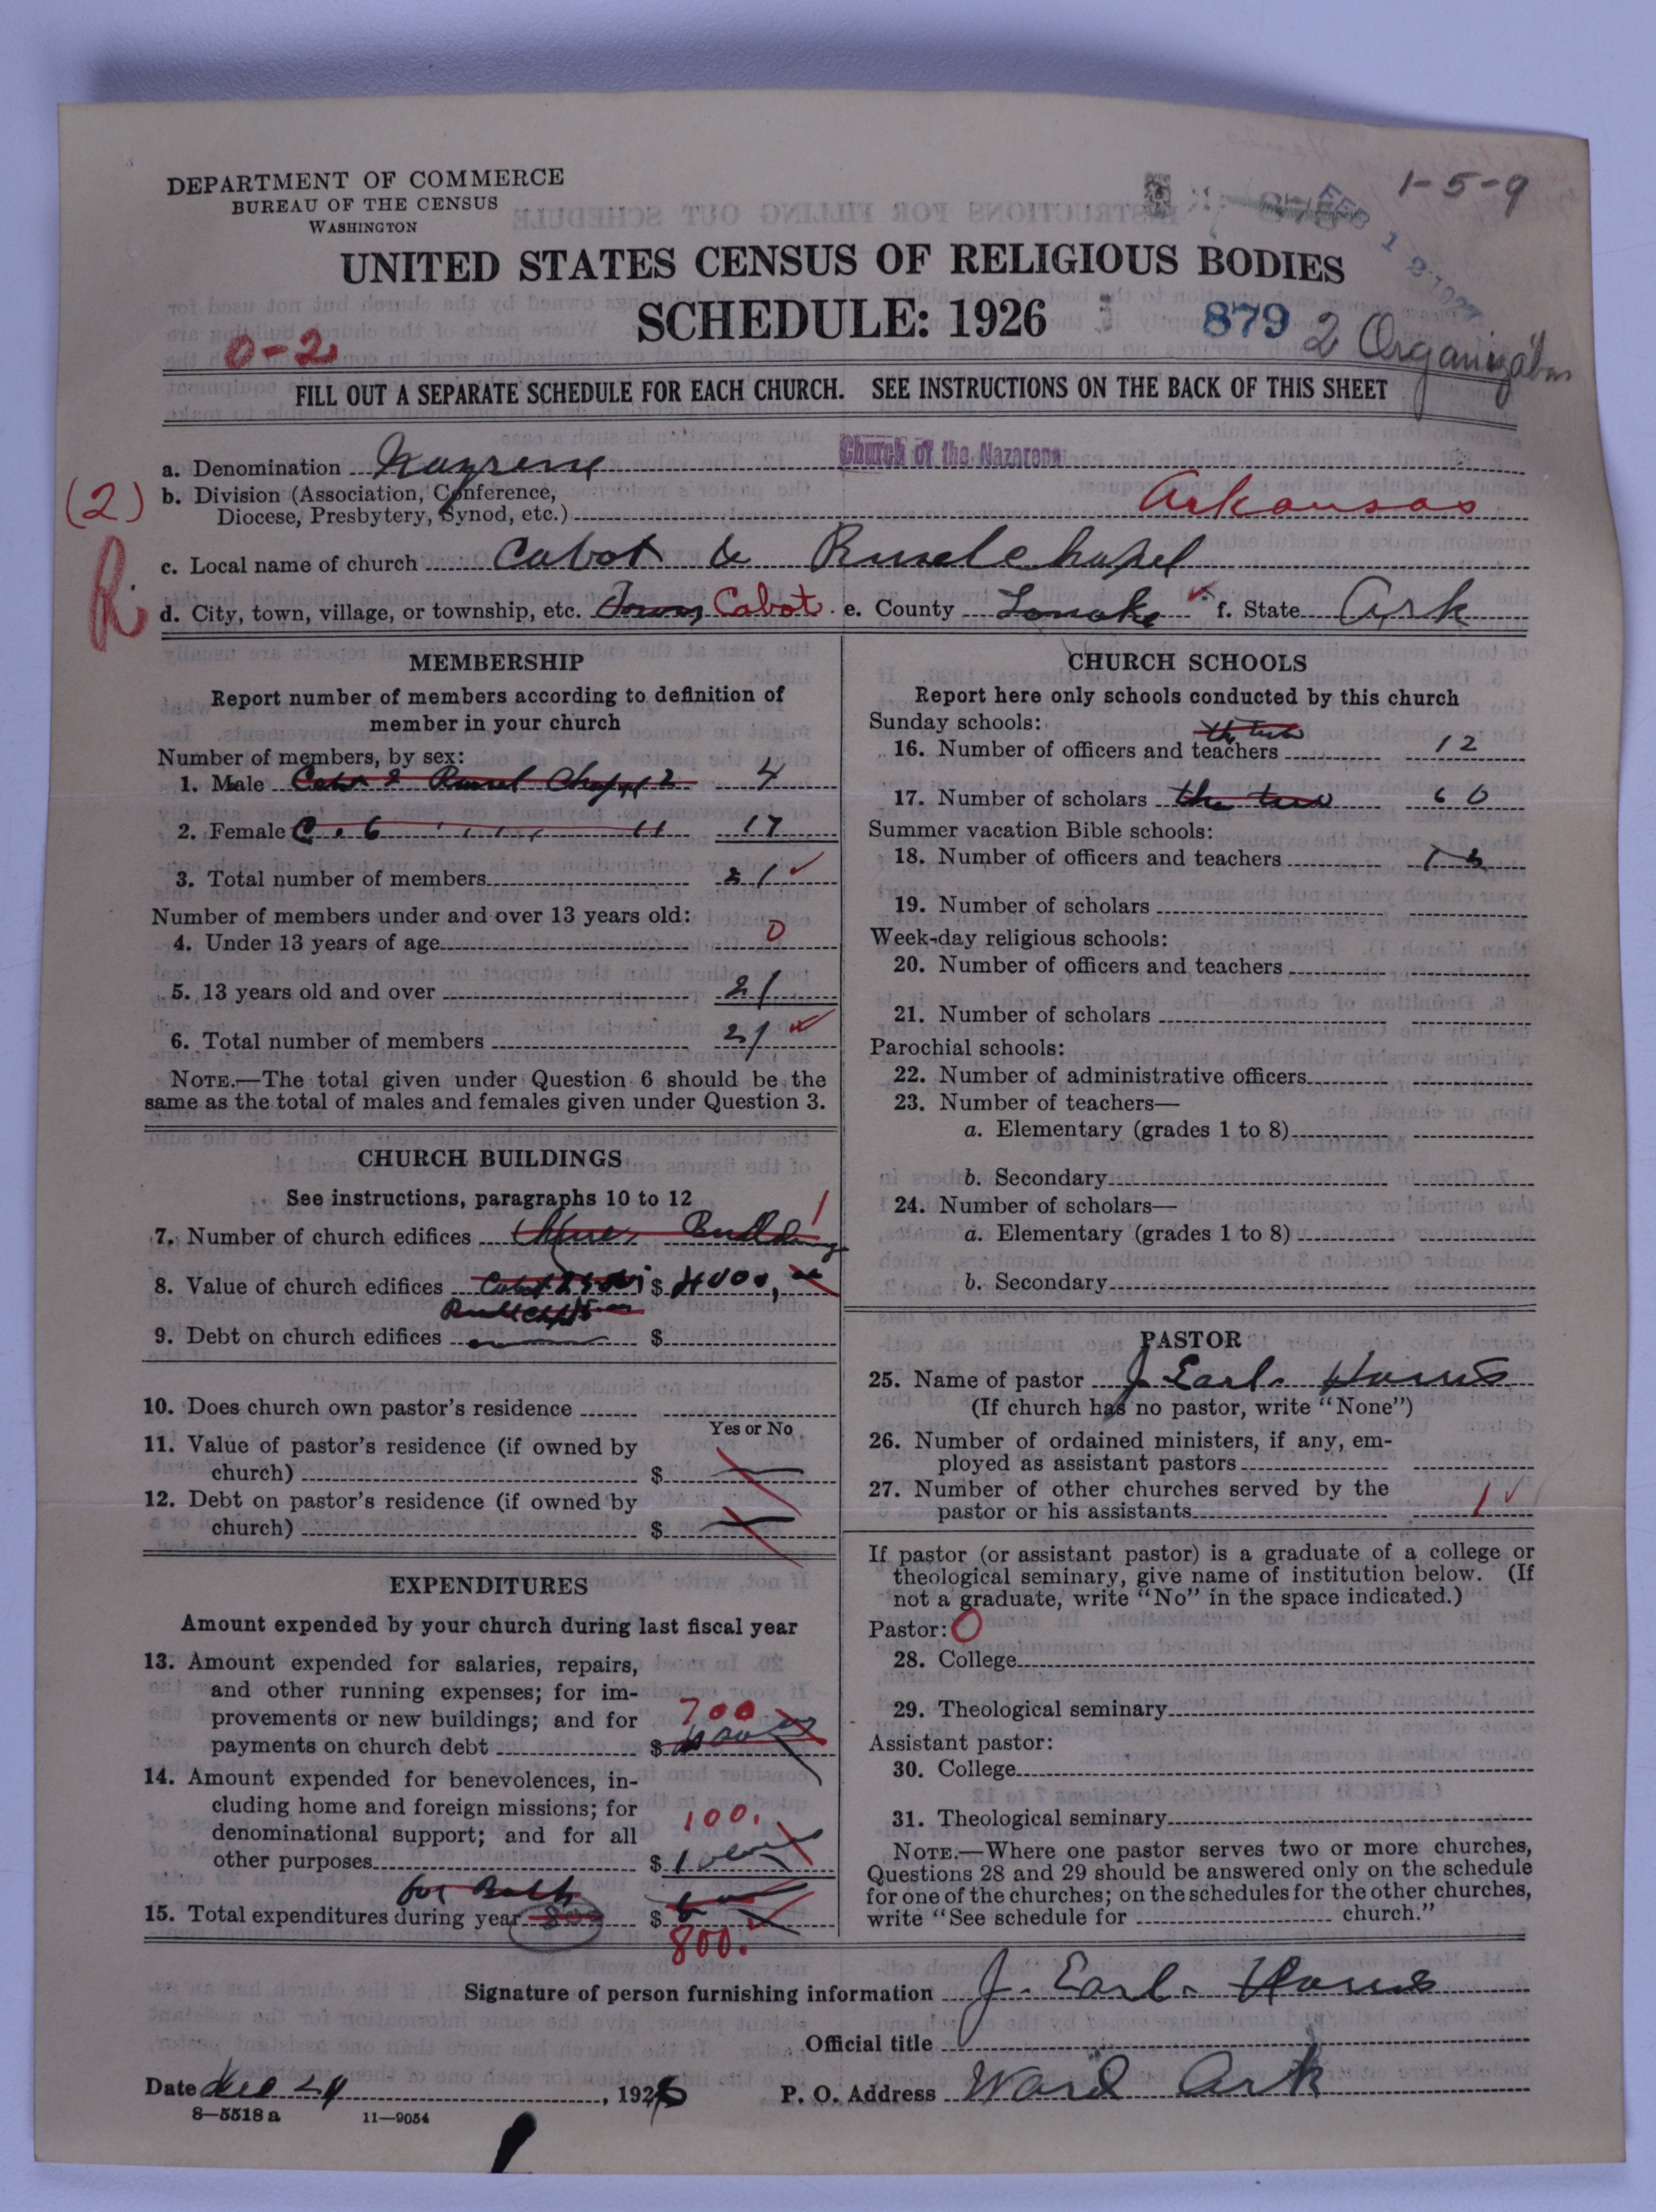 DEPARTMENT OF COMMERCE
BUREAU OF THE CENSUS
WASHINGTON
1-5-9
FEB 1 2 1927
UNITED STATES CENSUS OF RELIGIOUS BODIES
SCHEDULE: 1926
879
2 Organizations
0-2
FILL OUT A SEPARATE SCHEDULE FOR EACH CHURCH. SEE INSTRUCTIONS ON THE BACK OF THIS SHEET
a. Denomination Nazrene Church of the Nazarene
(2) b. Division (Association, Conference,
Diocese, Presbytery, Synod, etc.) Arkansas
R
c. Local name of church Cabot & Russelchapel
d. City, town, village, or township, etc. Town Cabot e. County Lonoke f. State Ark
MEMBERSHIP
Report number of members according to definition of
member in your church
Number of members, by sex:
1. Male Cabot & Russel Chappel 2 4
2. Female C. & 11 17
3. Total number of members 21
Number of members under and over 13 years old:
4. Under 13 years of age 0
5. 13 years old and over 21
6. Total number of members 21
NOTE.—The total given under Question 6 should be the
same as the total of males and females given under Question 3.
CHURCH BUILDINGS
See instructions, paragraphs 10 to 12
7. Number of church edifices Building 1
8. Value of church edifices Cabot $ 4000,
9. Debt on church edifices $
10. Does church own pastor's residence
Yes or No
11. Value of pastor's residence (if owned by
church) $
12. Debt on pastor's residence (if owned by
church) $
EXPENDITURES
Amount expended by your church during last fiscal year
13. Amount expended for salaries, repairs,
and other running expenses; for im-
provements or new buildings; and for
payments on church debt $ 700
14. Amount expended for benevolences, in-
cluding home and foreign missions; for
denominational support; and for all
other purposes $ 100.
for Both
15. Total expenditures during year 800 $
800.
CHURCH SCHOOLS
Report here only schools conducted by this church
Sunday schools:
the two
16. Number of officers and teachers 12
17. Number of scholars the two 60
Summer vacation Bible schools:
18. Number of officers and teachers
19. Number of scholars
Week-day religious schools:
20. Number of officers and teachers
21. Number of scholars
Parochial schools:
22. Number of administrative officers
23. Number of teachers—
a. Elementary (grades 1 to 8)
b. Secondary
24. Number of scholars—
a. Elementary (grades 1 to 8)
b. Secondary
PASTOR
25. Name of pastor J. Earl. Harris
(If church has no pastor, write "None")
26. Number of ordained ministers, if any, em-
ployed as assistant pastors
27. Number of other churches served by the
pastor or his assistants 1
If pastor (or assistant pastor) is a graduate of a college or
theological seminary, give name of institution below. (If
not a graduate, write "No" in the space indicated.)
Pastor: 0
28. College
29. Theological seminary
Assistant pastor:
30. College
31. Theological seminary
NOTE.—Where one pastor serves two or more churches,
Questions 28 and 29 should be answered only on the schedule
for one of the churches; on the schedules for the other churches,
write "See schedule for church."
Signature of person furnishing information J. Earl. Harris
Official title
Date Dec 24, 1926 P. O. Address Ward Ark
8—5518 a 11—9054